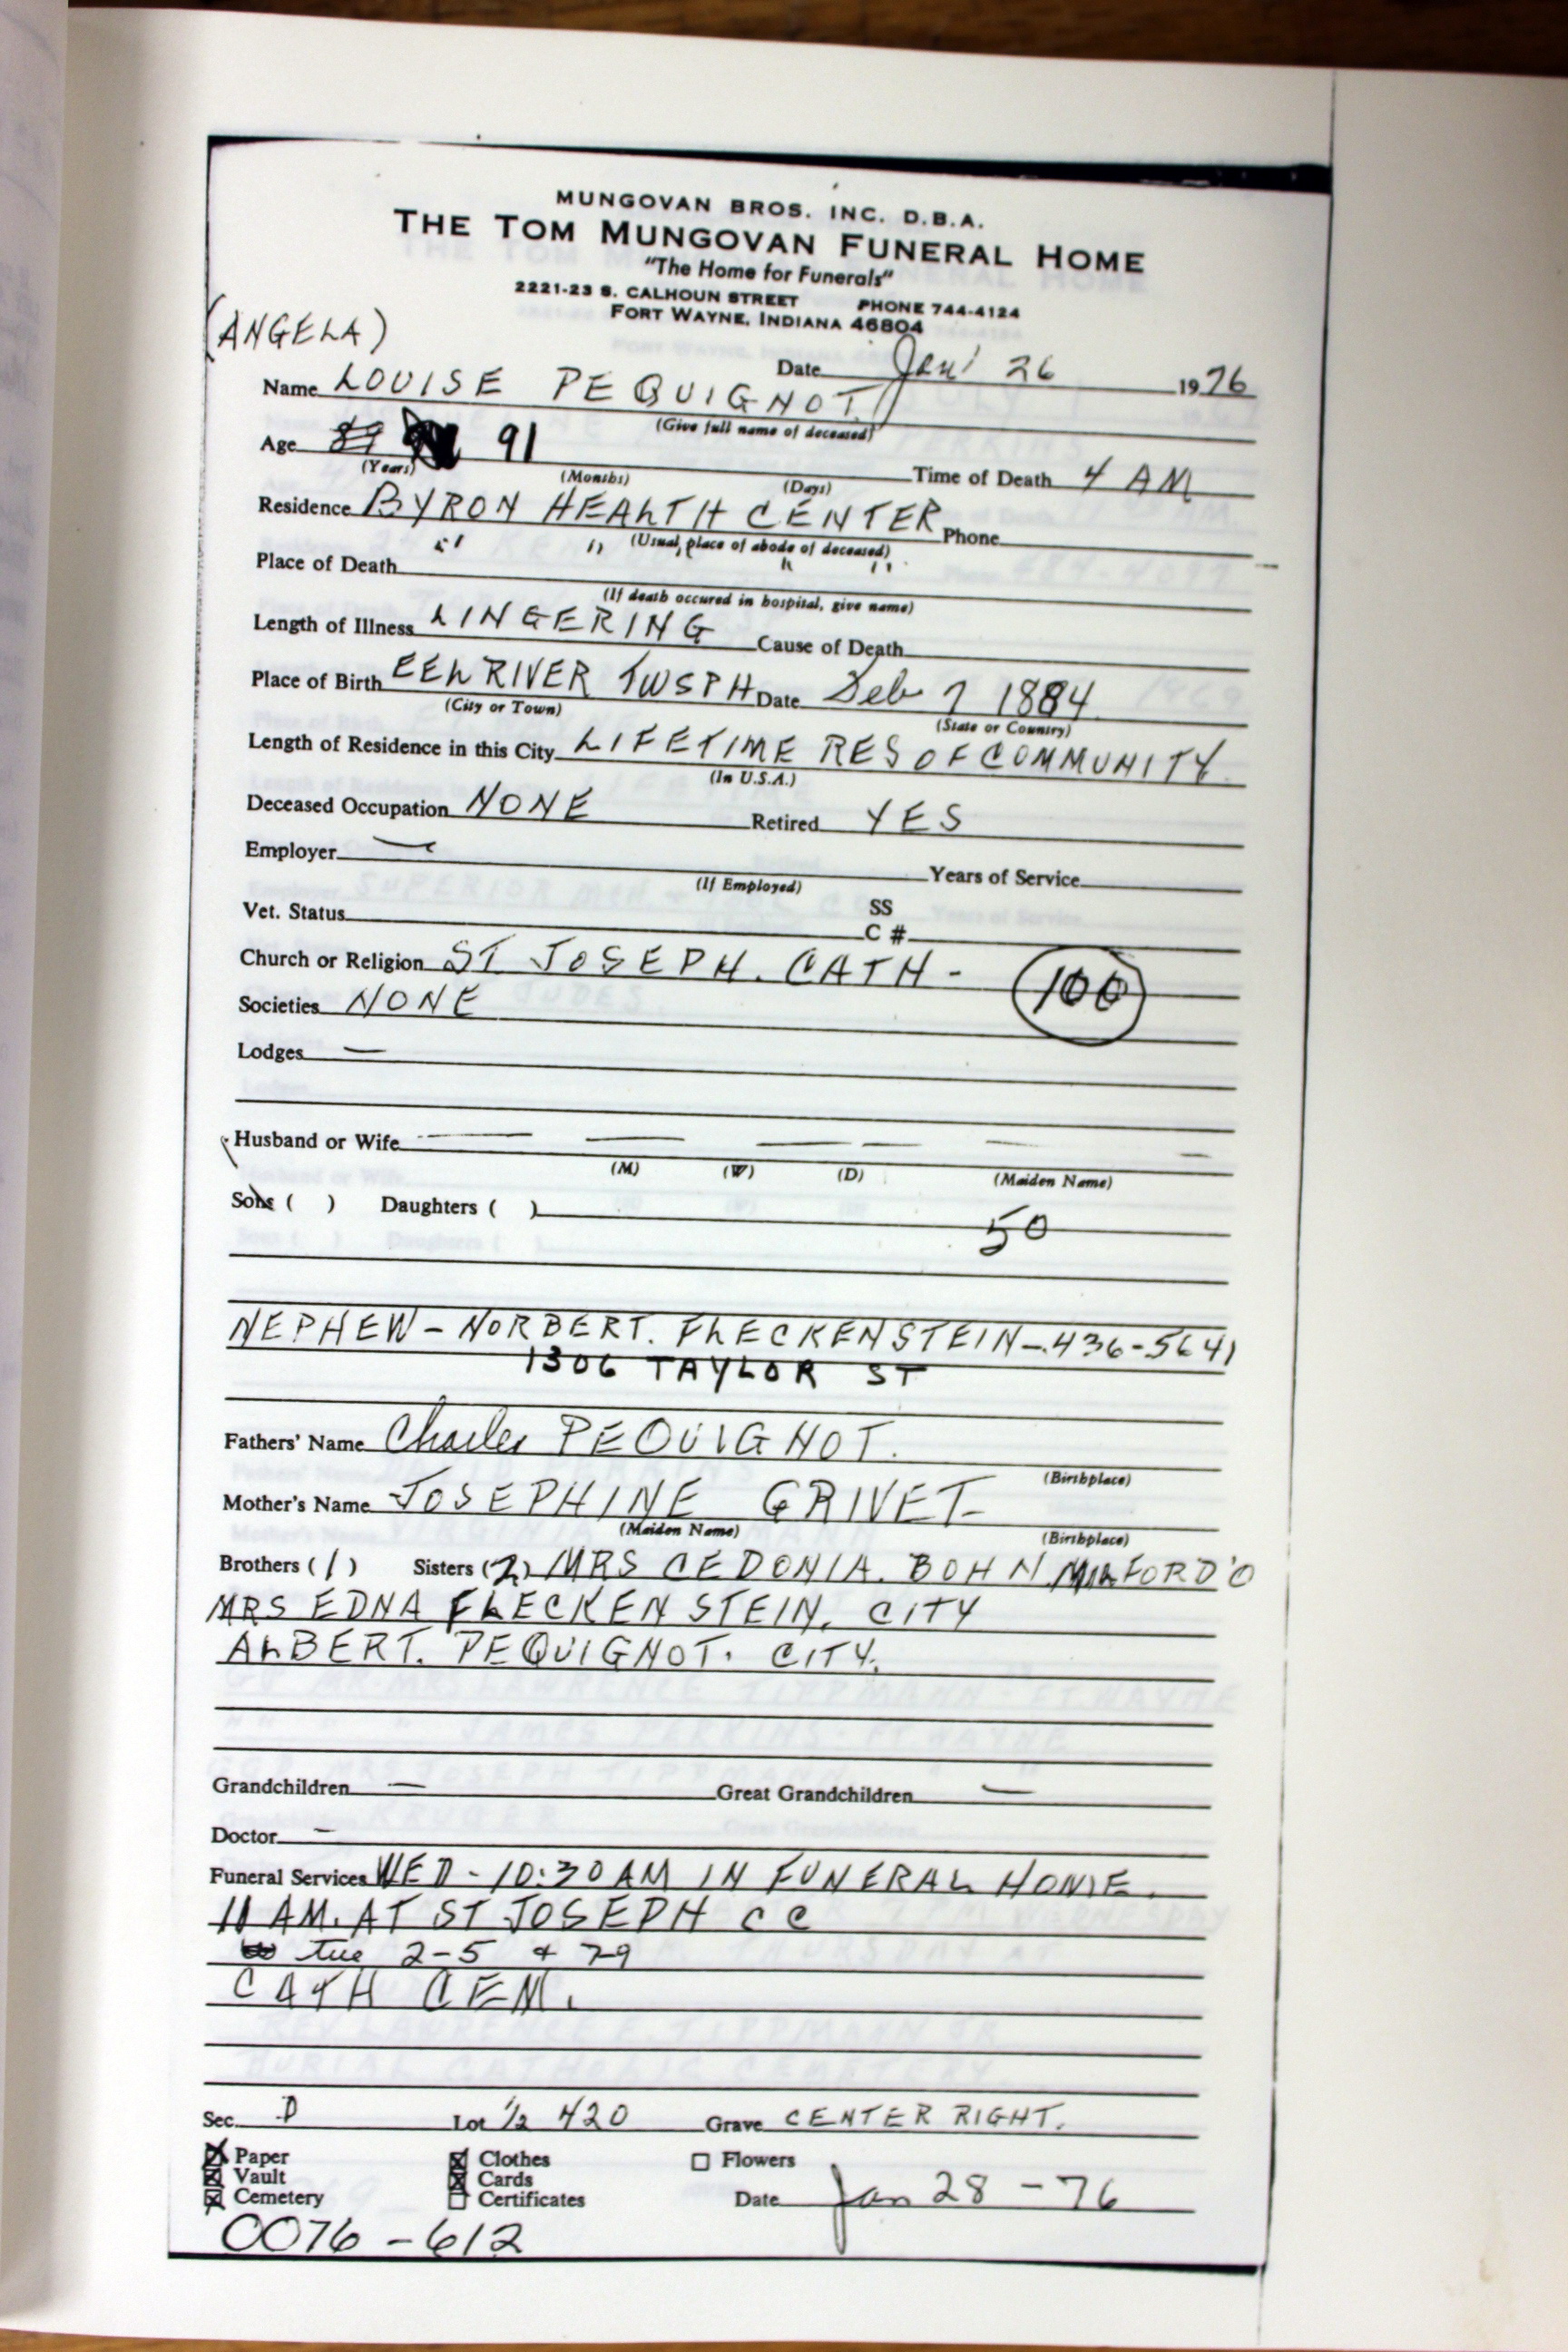 MUNGOVAN BROS. INC. D.B.A.
THE TOM MUNGOVAN FUNERAL HOME
"The Home for Funerals"
2221-23 S. CALHOUN STREET PHONE 744-4124
FORT WAYNE, INDIANA 46804
(ANGELA)
Date Jan 26 1976
Name LOUISE PEQUIGNOT
(Give full name of deceased)
Age 89 91 Time of Death 4 AM
(Years) (Months) (Days)
Residence BYRON HEALTH CENTER Phone
(Usual place of abode of deceased)
Place of Death " " " "
(If death occured in hospital, give name)
Length of Illness LINGERING Cause of Death
Place of Birth EEL RIVER TWSPH Date Feb 7 1884
(City or Town) (State or Country)
Length of Residence in this City LIFETIME RES OF COMMUNITY
(In U.S.A.)
Deceased Occupation NONE Retired YES
Employer — Years of Service
(If Employed)
Vet. Status SS
C #
Church or Religion ST JOSEPH. CATH - 100
Societies NONE
Lodges —
Husband or Wife — — — — — —
(M) (W) (D) (Maiden Name)
Sons ( ) Daughters ( )
50
NEPHEW - NORBERT. FLECKENSTEIN - 436-5641
1306 TAYLOR ST
Fathers' Name Charles PEQUIGNOT.
(Birthplace)
Mother's Name JOSEPHINE GRIVET
(Maiden Name) (Birthplace)
Brothers (1) Sisters (2) MRS CEDONIA. BOHN MILFORD O
MRS EDNA FLECKENSTEIN, CITY
ALBERT. PEQUIGNOT. CITY.
Grandchildren — Great Grandchildren —
Doctor —
Funeral Services WED - 10:30 AM IN FUNERAL HOME.
11 AM. AT ST JOSEPH CC
Tue 2-5 & 7-9
CATH CEM.
Sec. D Lot 1/2 420 Grave CENTER RIGHT.
Paper Clothes Flowers
Vault Cards
Cemetery Certificates Date Jan 28 - 76
0076 - 612